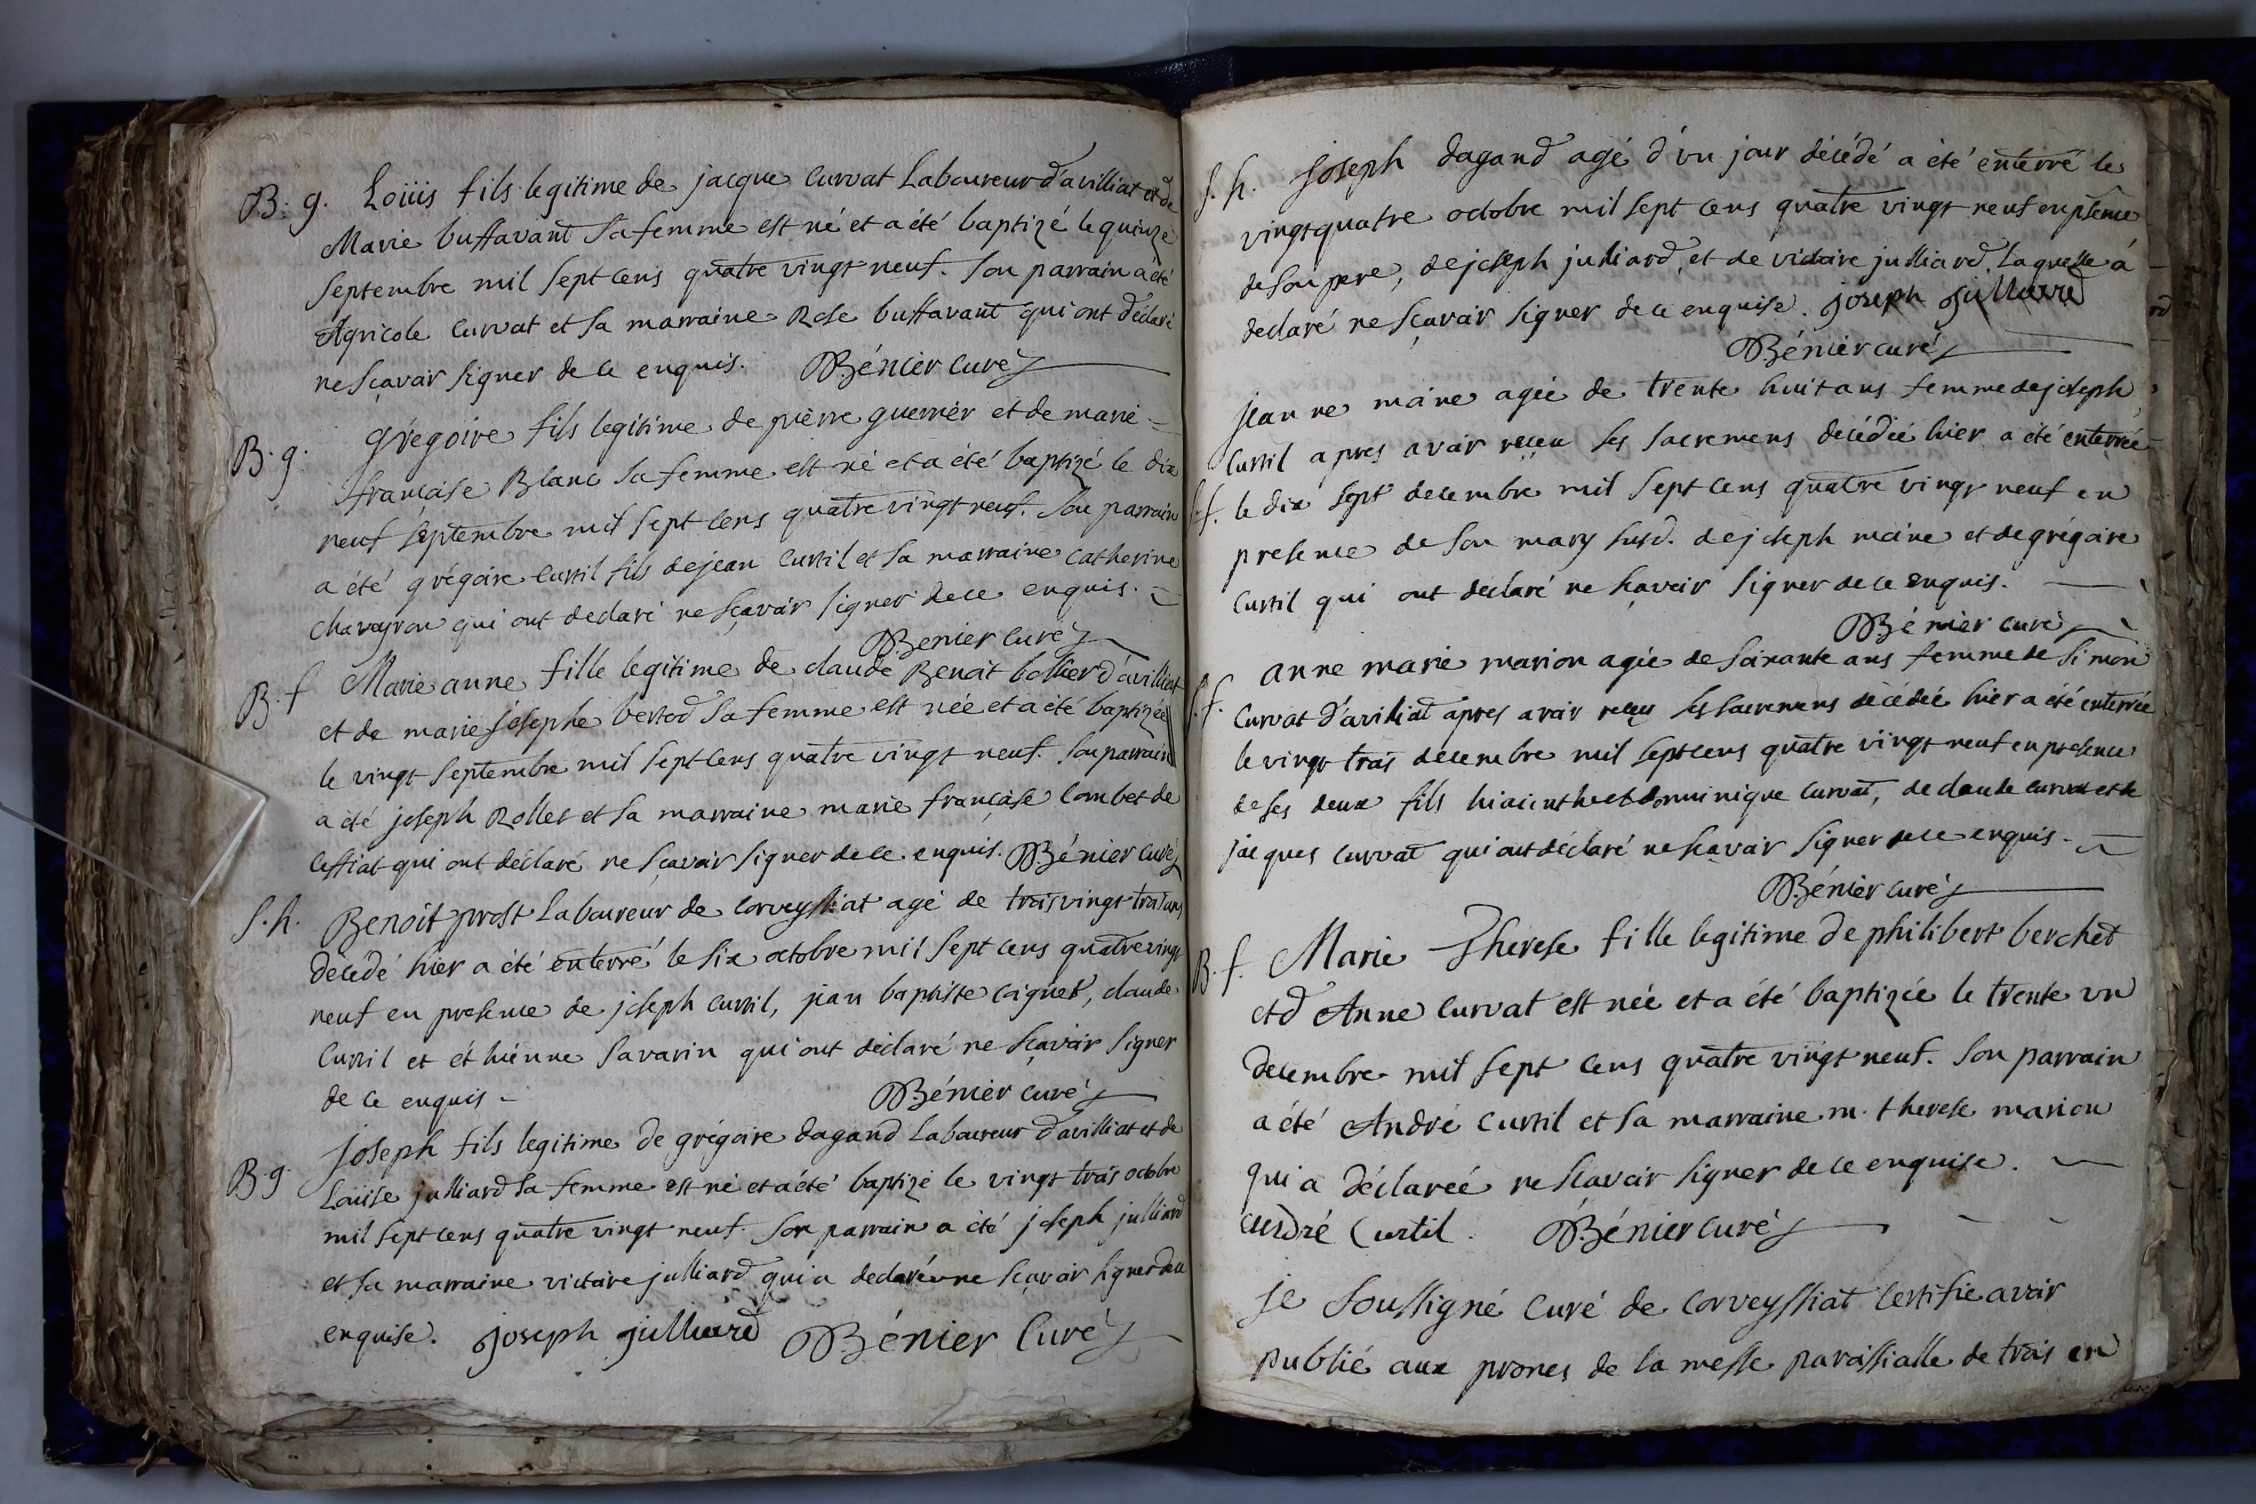 B. g. Loüis fils legitime de jacque curvat Laboureur d'avilliat et de
Marie buffavant sa femme est né et a été baptizé le quinze
septembre mil sept cens quatre vingt neuf. son parrain a été
Agricole curvat et sa marraine Rose buffavant qui ont déclaré
ne sçavoir signer de ce enquis. Bénier curé
B. g. grégoire fils legitime de pièrre guerrier et de marie
françoise Blanc sa femme est né et a été baptizé le dix
neuf septembre mil sept cens quatre vingt neuf. son parrain
a été grégoire curtil fils de jean curtil et sa marraine catherine
chaveyron qui ont declaré ne sçavoir signer de ce enquis.
Benier curé
B. f Marie anne fille legitime de claude Benoit bollier d'avilliat
et de marie josephe bertod sa femme est née et a été baptizée
le vingt septembre mil sept cens quatre vingt neuf. son parrain
a été joseph Rollet et sa marraine marie françoise combet de
ceffiat qui ont déclaré ne sçavoir signer de ce enquis. Bénier curé
S. h. Benoit prost Laboureur de corveyssiat agé de trois vingt trois ans
décedé hier a été enterré le six octobre mil sept cens quatre vingt
neuf en presence de joseph curtil, jean baptiste coignet, claude
curtil et éthiènne savarin qui ont déclaré ne sçavoir signer
de ce enquis - Bénier curé
joseph fils legitime de grégoire dagand Laboureur d'avilliat et de
B. g. Loüise julliard sa femme est né et a été baptizé le vingt trois octobre
mil sept cens quatre vingt neuf. son parrain a été joseph julliard
et sa marraine victoire julliard qui a declaré ne sçavoir signer de ce
enquise. joseph julliard Bénier curé
S. h. joseph dagand agé d'un jour décédé a été enterré le
vingt quatre octobre mil sept cens quatre vingt neuf en psence
de son pere, de joseph julliard, et de victoire julliard laquelle a
declaré ne sçavoir signer de ce enquise. joseph julliard
Bénier curé
jeanne moine agée de trente huit ans femme de joseph
curtil apres avoir reçeu les sacremens décédée hier a été enterrée
S. f. le dix sept decembre mil sept cens quatre vingt neuf en
presence de son mary susd. de joseph moine et de grégoire
curtil qui ont declaré ne sçavoir signer de ce enquis.
Bénier curé
anne marie marion agée de soixante ans femme de simon
S. f. curvat d'avilliat apres avoir reçeu les sacremens décédée hier a été enterrée
le vingt trois decembre mil sept cens quatre vingt neuf en presence
de ses deux fils hiacinthe et dominique curvat, de claude curvat et de
jacques curvat qui ont déclaré ne sçavoir signer de ce enquis.
Bénier curé
B. f. Marie Therese fille legitime de philibert berchet
et d'Anne curvat est née et a été baptizée le trente un
decembre mil sept cens quatre vingt neuf. son parrain
a été André curtil et sa marraine m. therese marion
qui a déclareé ne sçavoir signer de ce enquise.
andré curtil. Bénier curé
je soussigné curé de corveyssiat certifie avoir
publié aux prones de la messe paroissialle de trois en